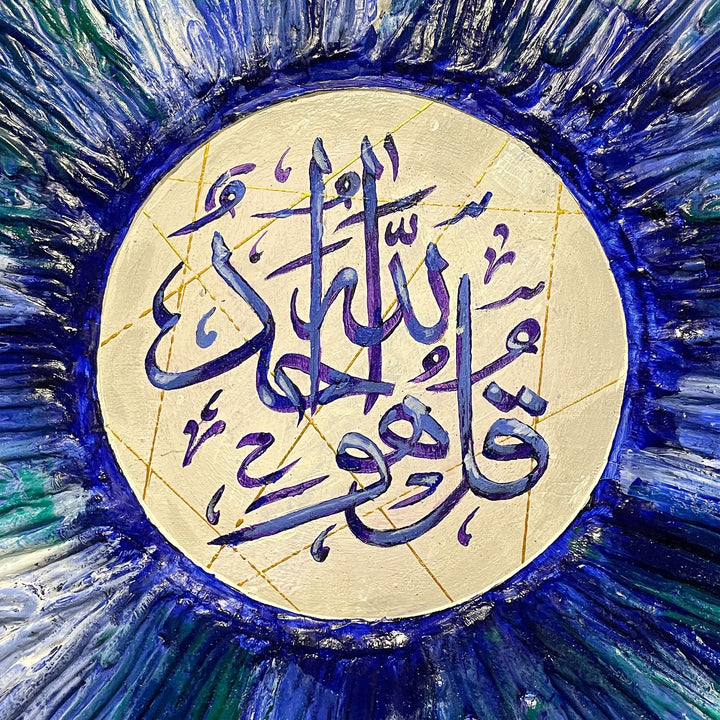 قُلْ هُوَ
اللّٰهُ أَحَدٌ